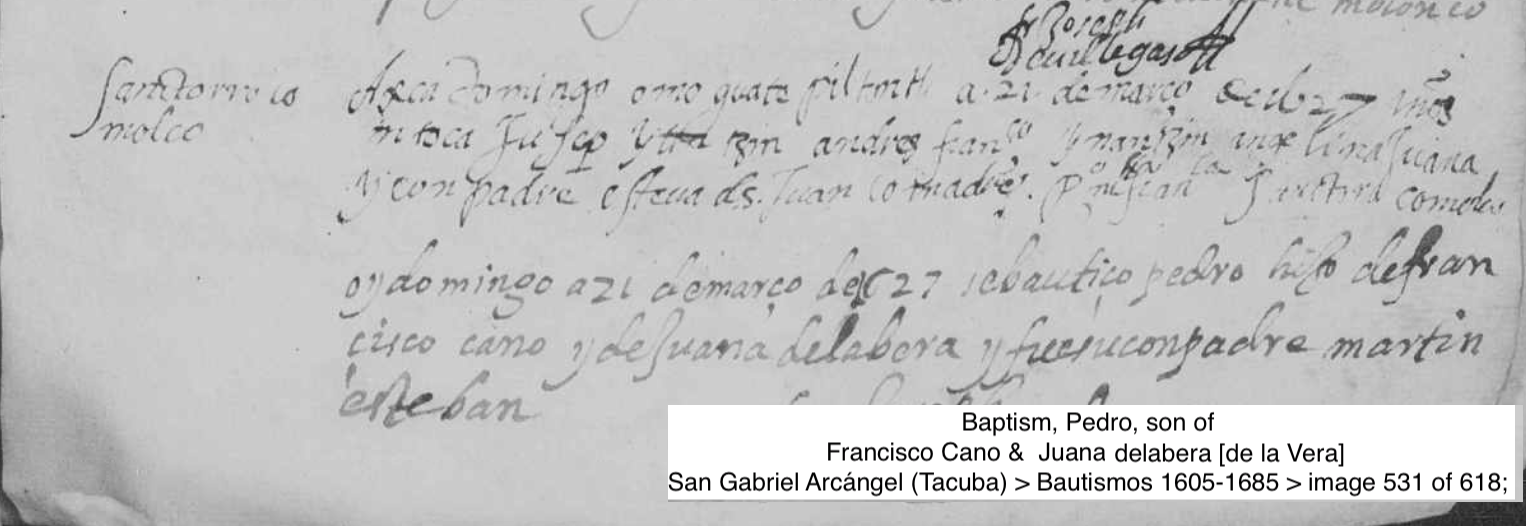 molonco
fr Joseph
de villegas
Sanctorroco
molco
Axca domingo omo quate piltontli a 21 de março de 1627 años
intoca Jusep ytta tzin andres franco ynantzin angelina Juana
y conpadre esteua ds. Juan comadre.
oy domingo a 21 de março de 627 se bautiço pedro hijo de fran
cisco cano y de Juana delabera y fue su conpadre martin
esteban
Baptism, Pedro, son of
Francisco Cano & Juana delabera [de la Vera]
San Gabriel Arcángel (Tacuba) > Bautismos 1605-1685 > image 531 of 618;